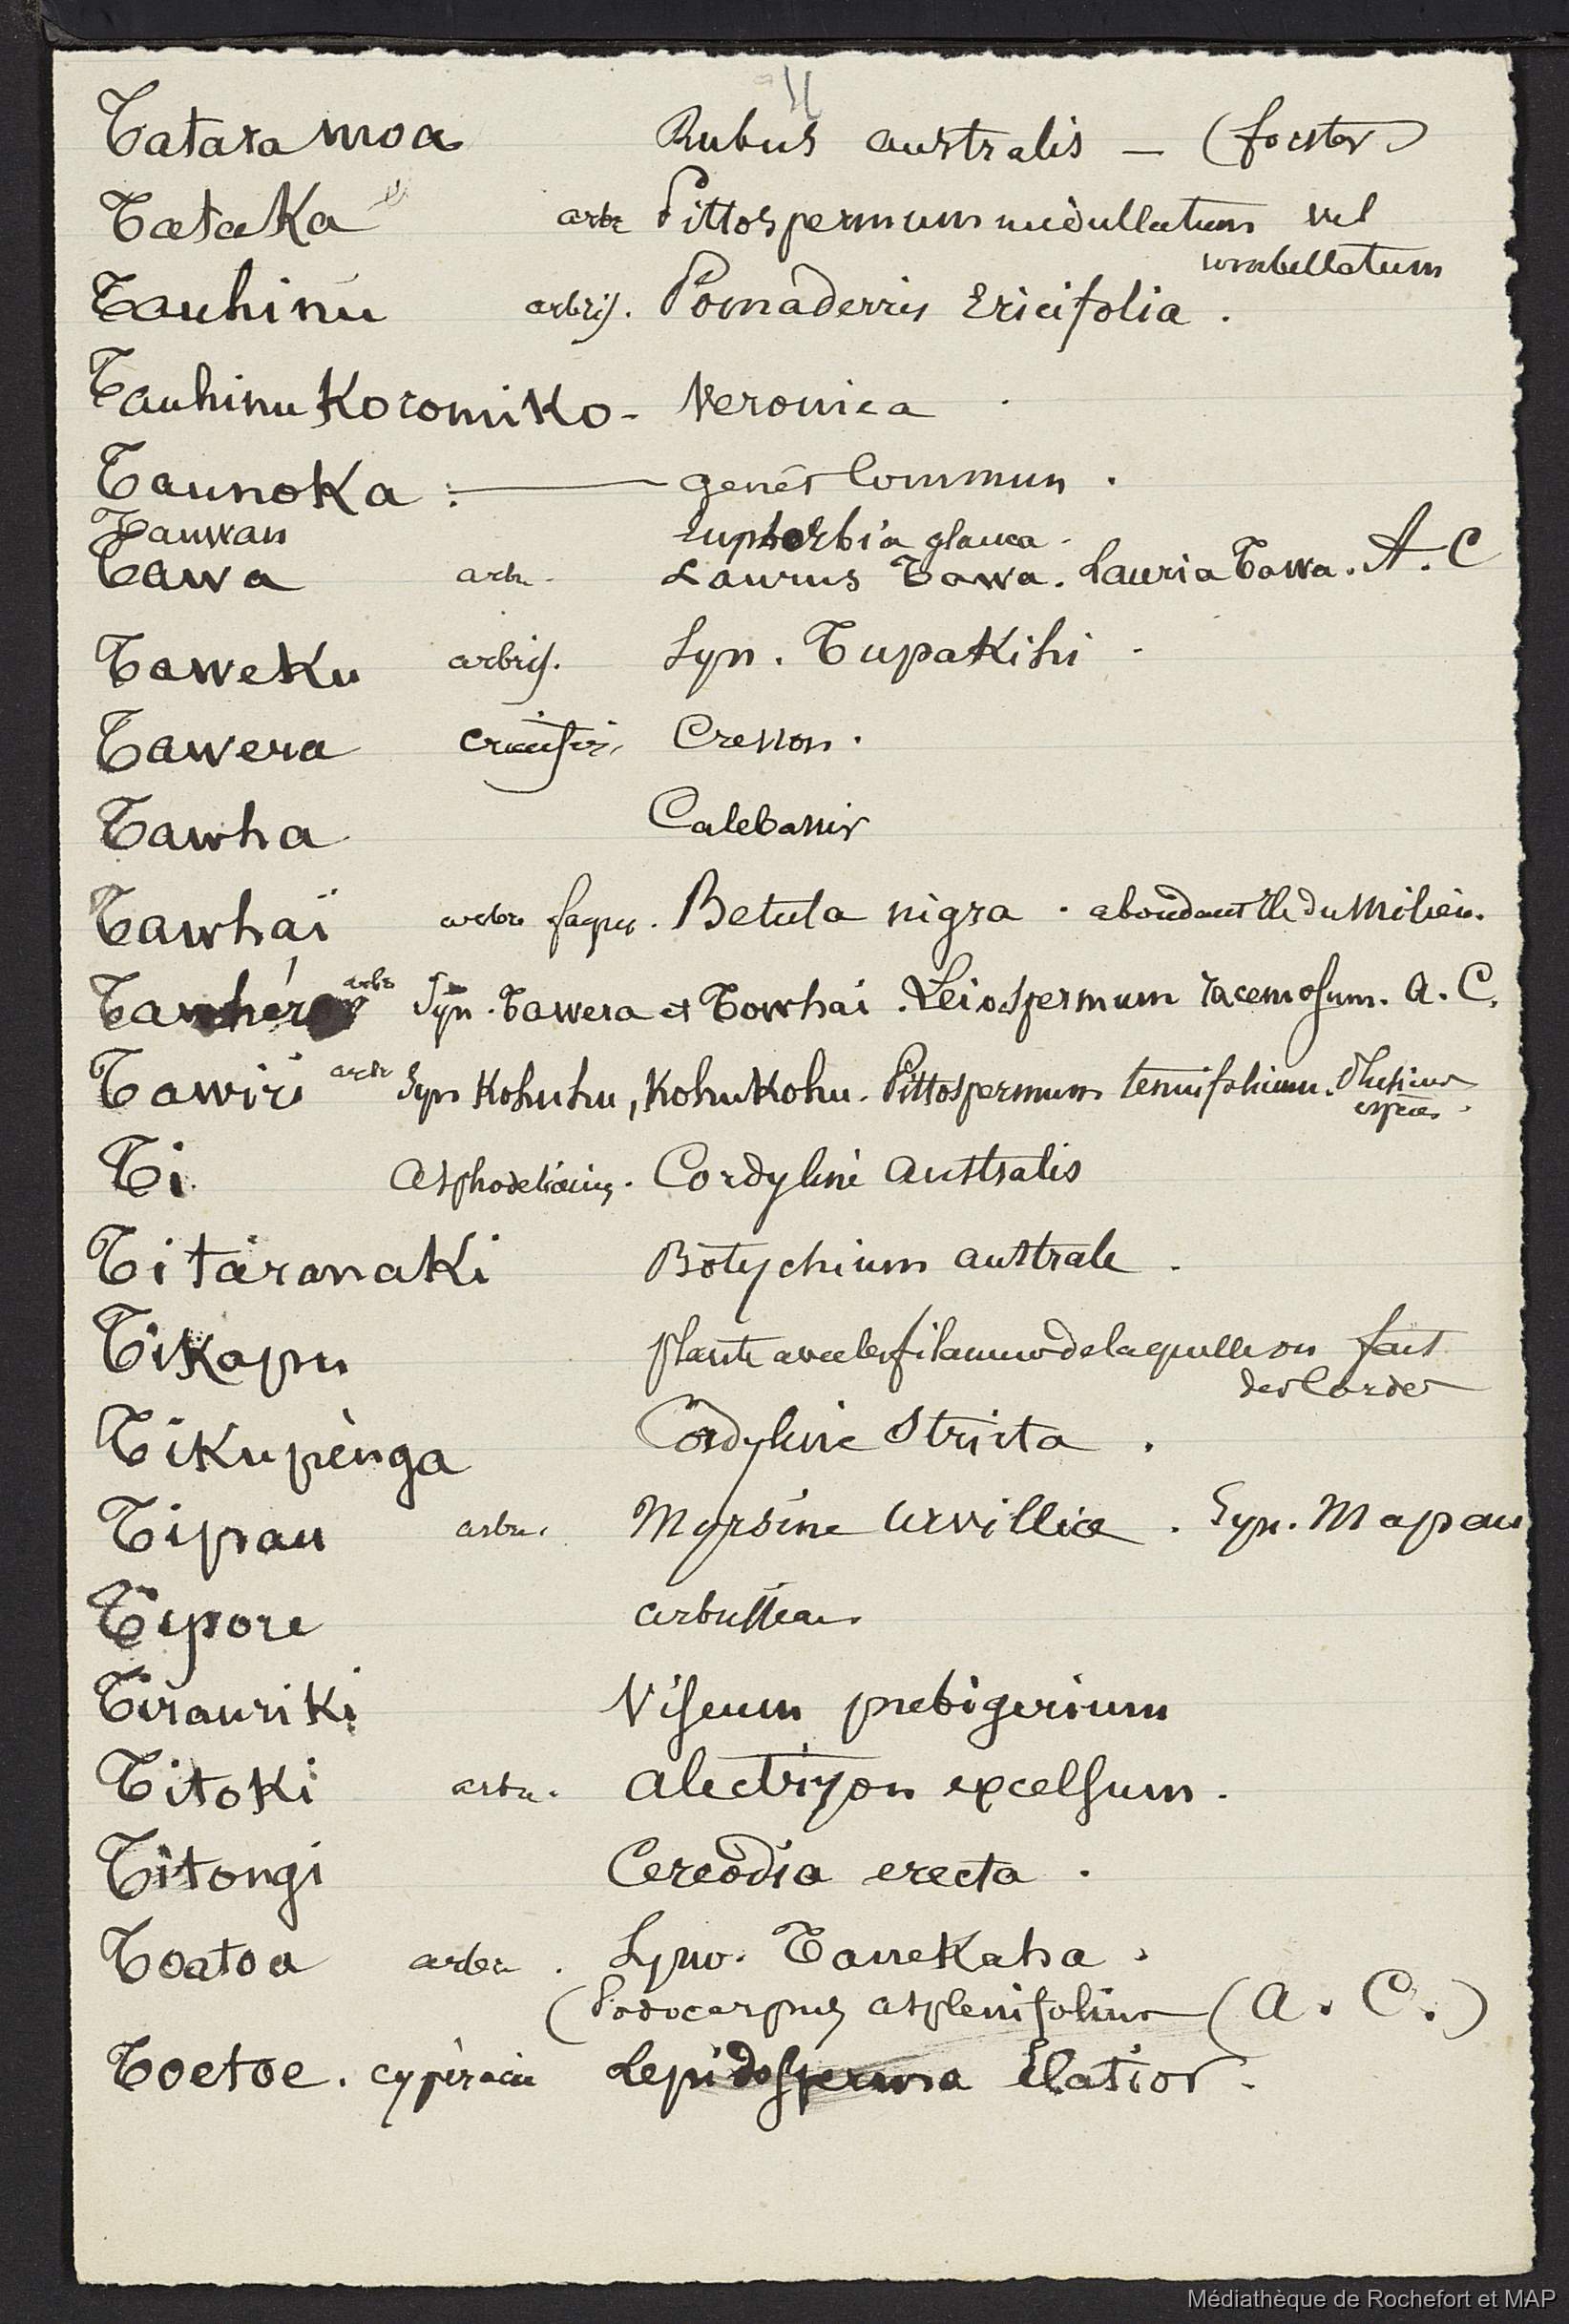 11
Tataramoa Rubus australis — (forster)
Tataka arbr Pittospermum medullatum vel
umbellatum
Tauhinu arbris. Pomaderris Ericifolia.
Tauhinu Koromiko - Veronica
Taunoka: — genêt Commun.
Tauwau Euphorbia glauca.
Tawa arbr. Laurus Tawa. Lauria Tawa. A. C
Taweku arbris. Syn. Tupakihi.
Tawera crucifer. Cresson.
Tawha Calebassier
Tawhaï arbre fagus. Betula nigra. abondant Ile du Milieu.
Tawhéro arbr Syn. Tawera et Towhai. Leiospermum racemosum. A. C.
Tawiri arbr Syn Kohuhu, Kohukohu. Pittospermum tenuifolium. Plusieurs
espèces.
Ti Asphodeliacius. Cordyline australis
Titaranaki Botychium australe.
Tikapu plante avec les filaments de laquelle on fait
des Cordes
Tikupènga Cordyline Stricta.
Tipau arbr. Myrsine Urvilliæ. Syn. Mapau
Tipore arbusseau.
Tirauriki Viscum pubigerium
Titoki arbr. Alectryon excelsum.
Titongi Cercodia erecta.
Toatoa arbr. Syno. Tanekaha.
(Podocarpus asplenifolius (A. C.)
Toetoe. cypéracée Lepidosperma Elatior.
Médiathèque de Rochefort et MAP